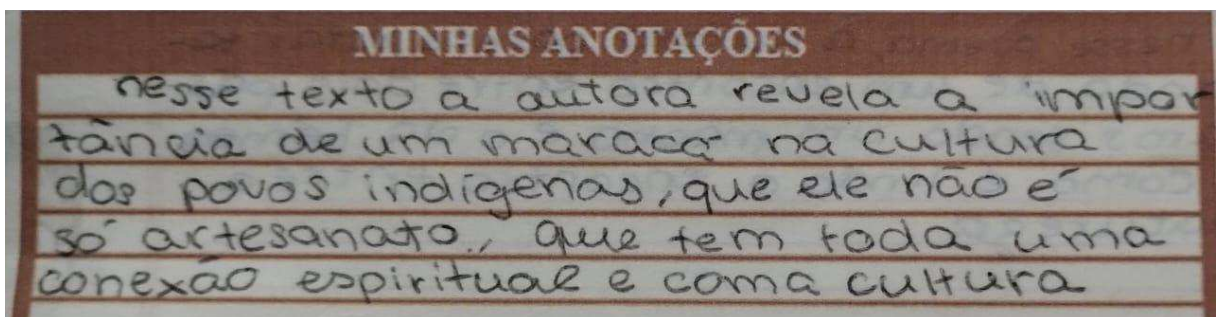 MINHAS ANOTAÇÕES
nesse texto a autora revela a impor
tância de um maracá na cultura
dos povos indígenas, que ele não é
só artesanato, que tem toda uma
conexão espiritual e coma cultura